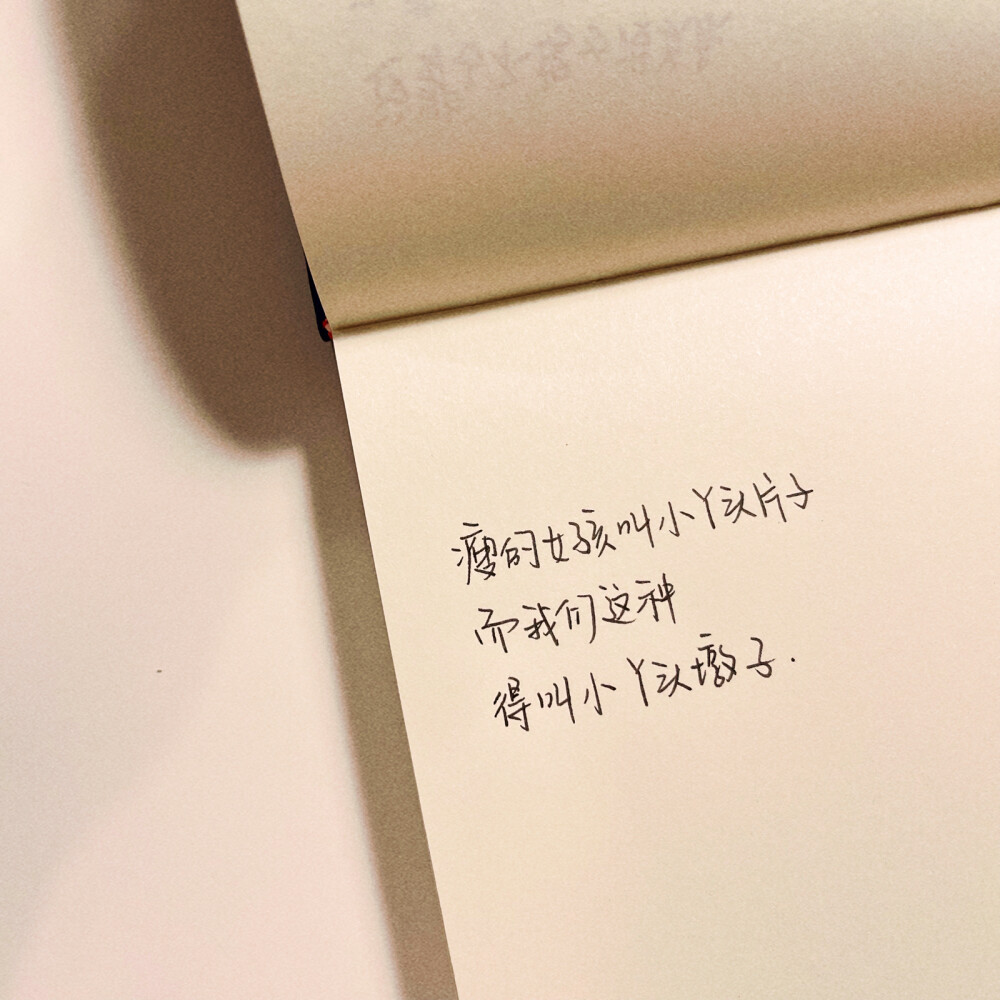 瘦的女孩叫小丫头片子
而我们这种
得叫小丫头墩子.